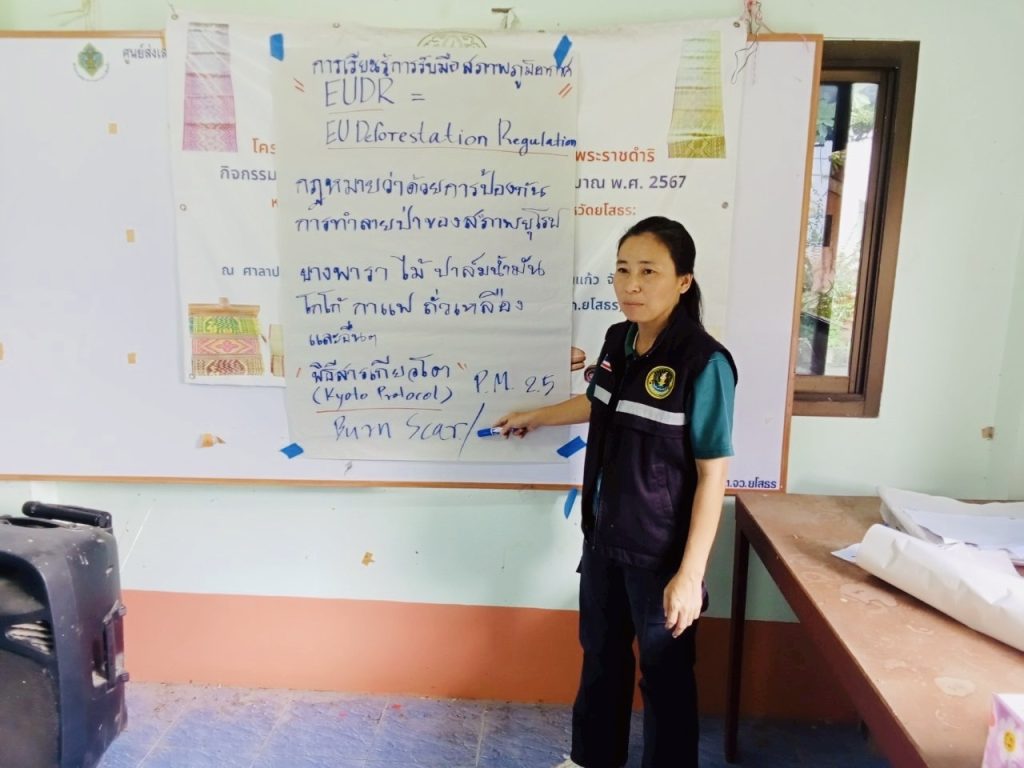 ศูนย์ส่งเส
การเรียนรู้การรับมือสภาพภูมิอากาศ
" EUDR = "
EU Deforestation Regulation
กฎหมายว่าด้วยการป้องกัน
การทำลายป่าของสภาพยุโรป
ยางพารา ไม้ ปาล์มน้ำมัน
โกโก้ กาแฟ ถั่วเหลือง
และอื่นๆ
" พิธีสารเกียวโตา "
(Kyoto Protocol) P.M. 2.5
Burn Scar/
โคร
พระราชดำริ
กิจกรรม
มาณ พ.ศ. 2567
ห
หวัดยโสธร
ณ ศาลาป
แก้ว จ
อ.ยโสธร
จว.ยโสธร